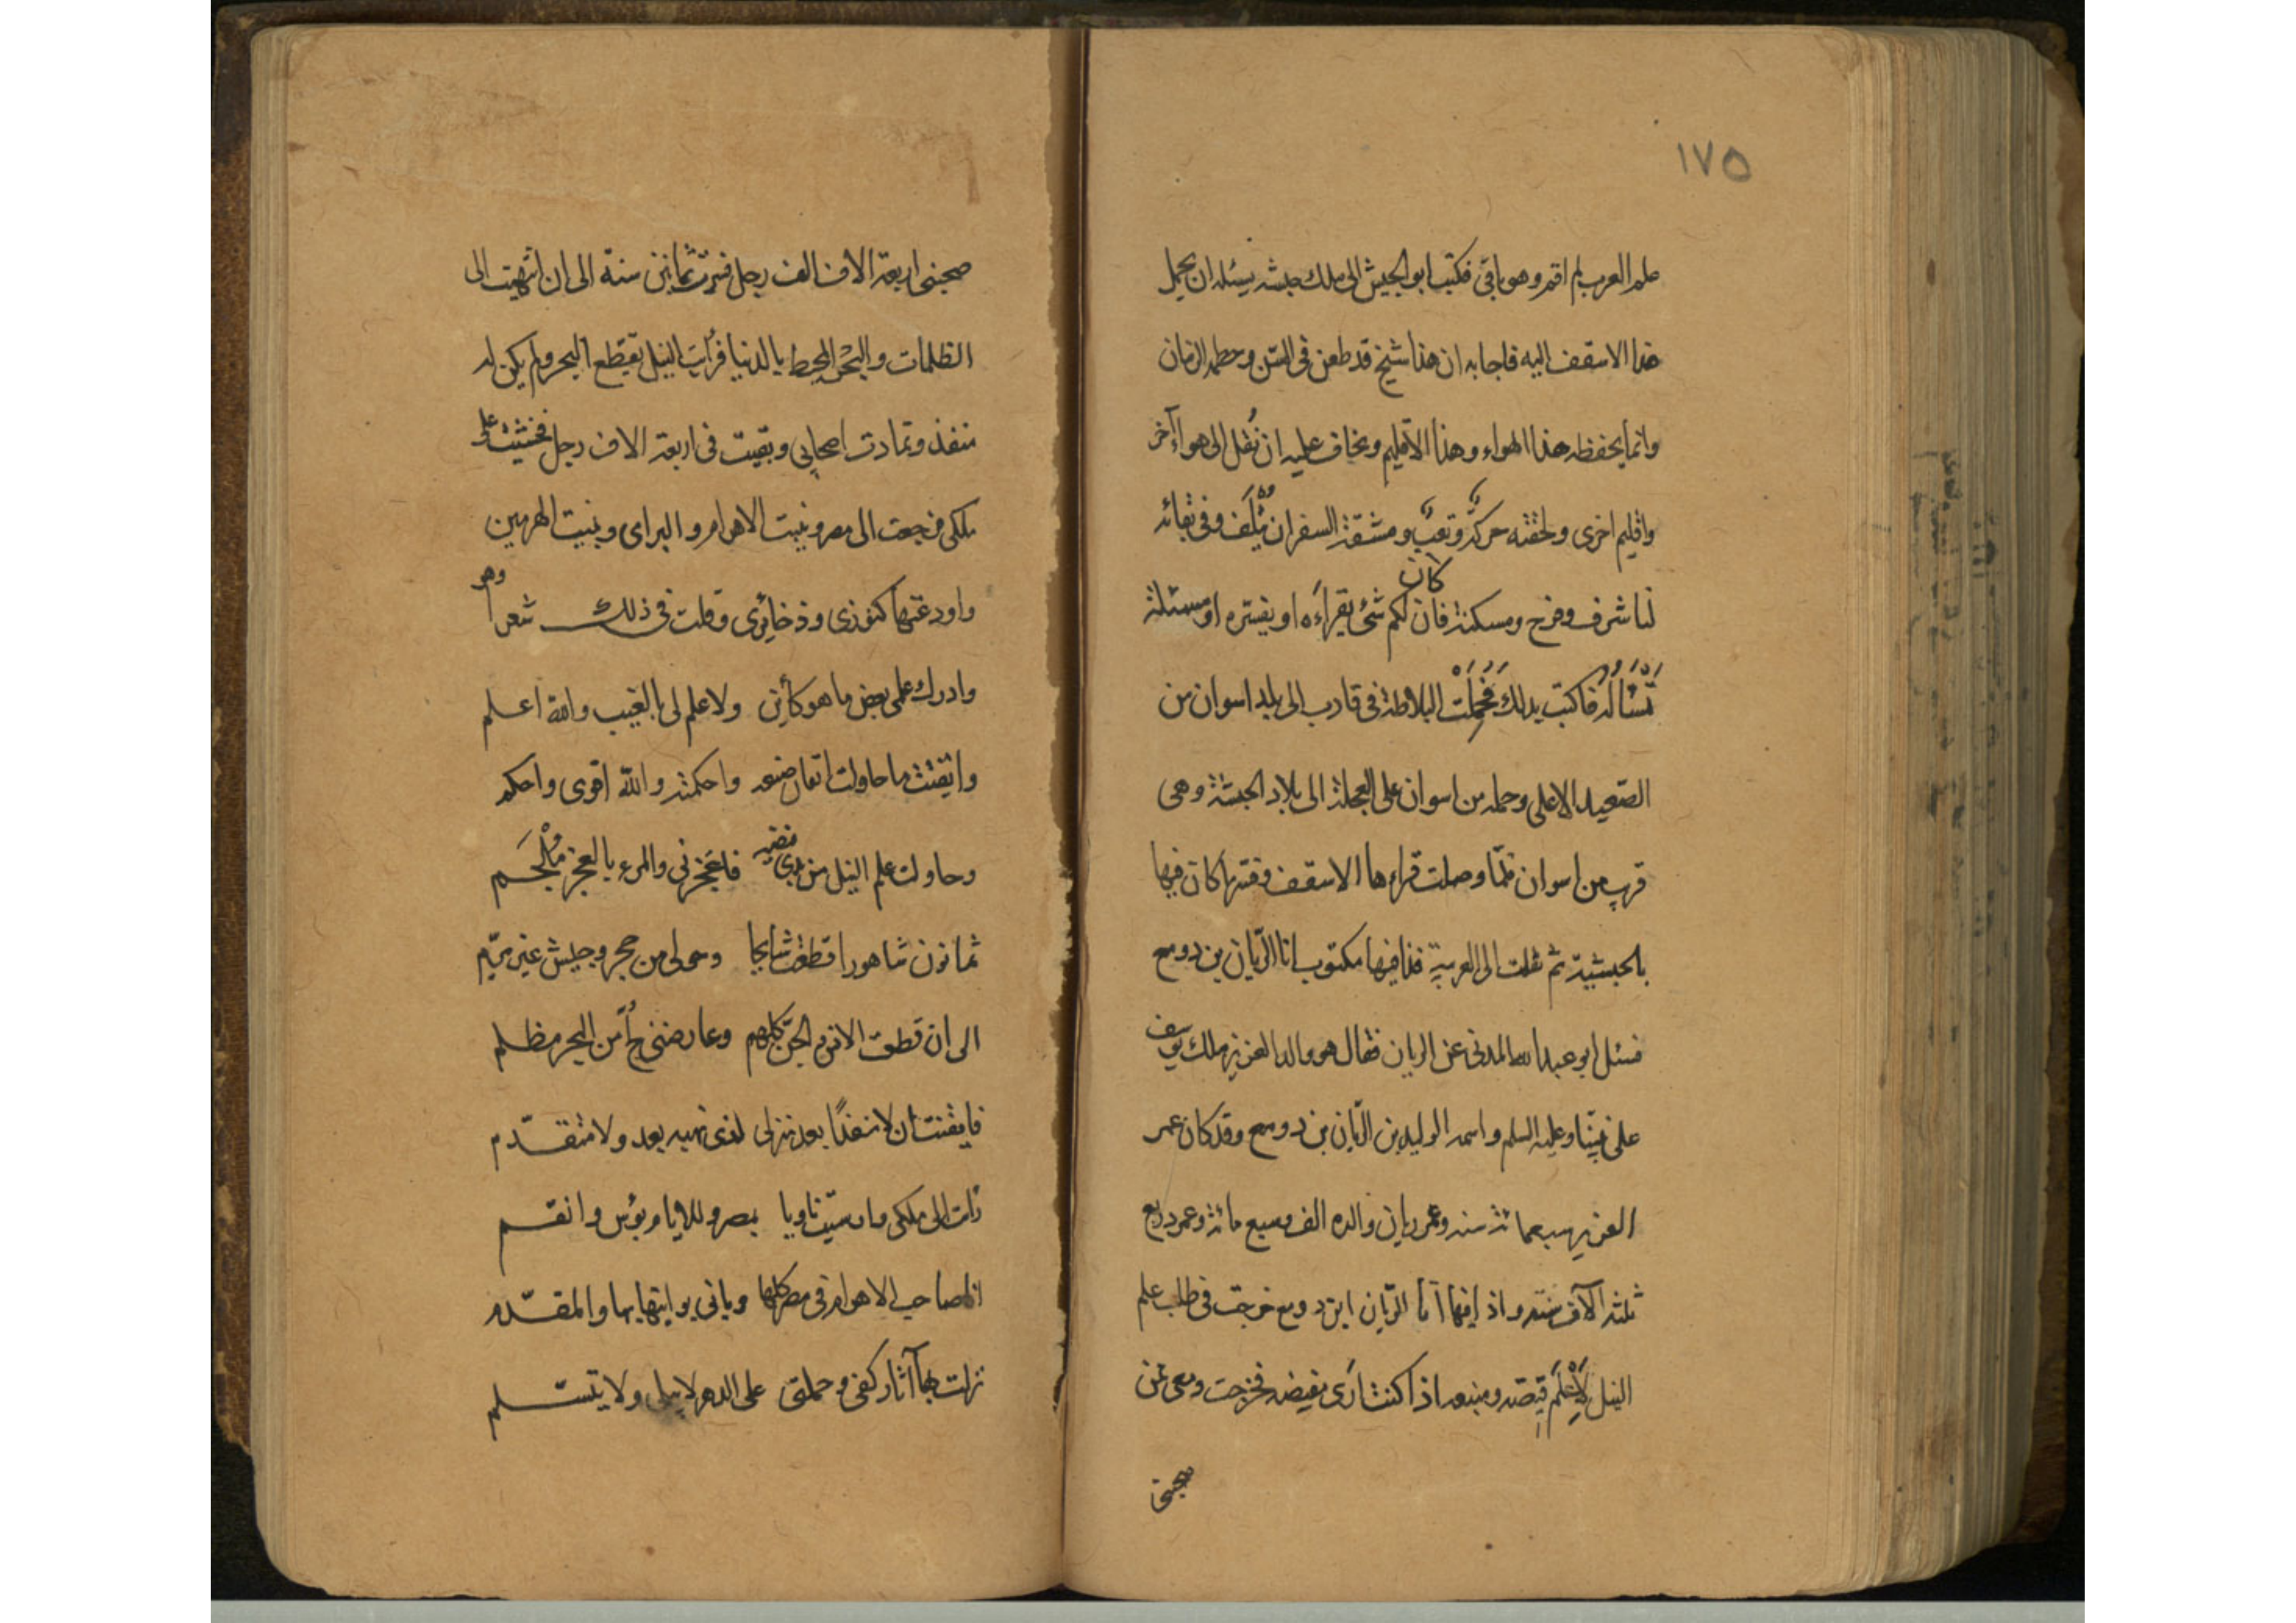 ١٧٥
علم العرب لم اقم وهو باقى فكتب ابو الجيش الى ملك حبشه يسئله ان يحمل
هذا الاسقف اليه فاجابه ان هذا شيخ قد طعن فى السّن وحطمه الزمان
وانما يحفظه هذا الهواء وهذا الاقليم ويخاف عليه ان نُقل الى هواء آخر
واقليم اخرى ولحقته حركة وتعب ومشقة السفر ان يُتْلَف وفى بقائه
لنا شرف وفرح ومسكنة فان كان لكم شئ يقراءه او يفسّره او مسئلة
تَسْأَلُه فاكتب بذلك فَحُمِلَتْ البلاطة فى قارب الى بلد اسوان من
الصّعيد الاعلى وحمله من اسوان على العجلة الى بلاد الحبشة وهى
قريب من اسوان فلمّا وصلت قراءها الاسقف وفسّرها كان فيها
بالحبشية ثم نقلت الى العربية فاذا فيها مكتوب انا الرّيان بن دومع
فسئل ابو عبد الله المدنى عن الريان فقال هو والد العزيز ملك يوسف
على نبيّنا وعليه السلم واسمه الوليد بن الرّيان بن دومع وقد كان عمر
العزيز سبعمائة سنه وعمر ريان والده الف وسبع مائة وعمر دومع
ثلثة الآف سنة واذ فيها انا الرّيان ابن دومع خرجت فى طلب علم
النيل لِأَعْلَمَ فيضه ومنبعه اذا كنت أرى مفيضه فخرجت ومعى ممّن
صحبنى
صحبنى اربعة الاف الف رجل فسرت ثمانين سنة الى ان انتهيت الى
الظلمات والبحر المحيط بالدنيا فرأيت النيل يقطع البحر ولم يكن له
منفذ وتمادت اصحابى وبقيت فى اربعة الاف رجل فخشيت على
ملكى فرجعت الى مصر وبنيت الاهرام والبراى وبنيت الهرمين
واودعتها كنوزى وذخائرى وقلت فى ذلك شعرا وهو
وادرك علمى بعض ما هو كائن ولا علم لى بالغيب والله اعلم
واتقنت ما حاولت اتقان صنعه واحكمته والله اقوى واحكم
وحاولت علم النيل من بدئ فيضه فاعجزنى والمرء بالعجز مُلْجَم
ثمانون شاهورا قطعت شايحا وحولى من حجر وجيش عرمرم
الى ان قطعت الانس والجن كلهم وعارضنى لجّ من البحر مظلم
فايقنت ان لا منفذا بعد منزلى لذى نهيه بعد ولا متقدّم
فأبت الى ملكى وارسيت ثاويا بمصر وللايام بؤس وانعم
انا صاحب الاهرام فى مصر كلها وبانى برابيها بها والمقدّم
تركت بها آثار كفى وحكمتى على الدهر لا يبلى ولا يتثلم